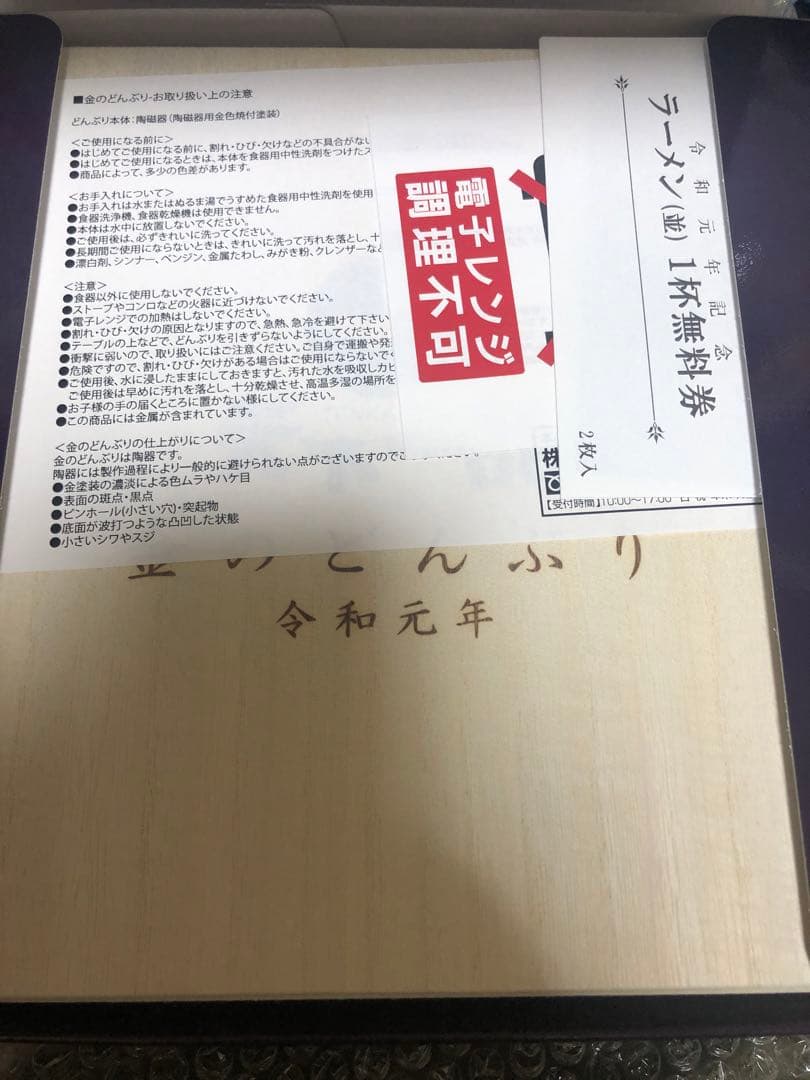 ■金のどんぶり-お取り扱い上の注意
どんぶり本体：陶磁器（陶磁器用金色焼付塗装）
＜ご使用になる前に＞
●はじめてご使用になる前に、割れ・ひび・欠けなどの不具合がない
●はじめてご使用になるときは、本体を食器用中性洗剤をつけたス
●商品によって、多少の色差があります。
＜お手入れについて＞
●お手入れは水またはぬるま湯でうすめた食器用中性洗剤を使用
●食器洗浄機、食器乾燥機は使用できません。
●本体は水中に放置しないでください。
●ご使用後は、必ずきれいに洗ってください。
●長期間ご使用にならないときは、きれいに洗って汚れを落とし、十
●漂白剤、シンナー、ベンジン、金属たわし、みがき粉、クレンザーなど
＜注意＞
●食器以外に使用しないでください。
●ストーブやコンロなどの火器に近づけないでください。
●電子レンジでの加熱はしないでください。
●割れ・ひび・欠けの原因となりますので、急熱、急冷を避けて下さい
●テーブルの上などで、どんぶりを引きずらないようにしてください。
●衝撃に弱いので、取り扱いにはご注意ください。ご自身で運搬や発
●危険ですので、割れ・ひび・欠けがある場合はご使用にならないで
●ご使用後、水に浸したままにしておきますと、汚れた水を吸収しカビ
ご使用後は早めに汚れを落とし、十分乾燥させ、高温多湿の場所を
●お子様の手の届くところに置かない様にしてください。
●この商品には金属が含まれています。
＜金のどんぶりの仕上がりについて＞
金のどんぶりは陶器です。
陶器には製作過程により一般的に避けられない点がございますのでご
●金塗装の濃淡による色ムラやハケ目
●表面の斑点・黒点
●ピンホール(小さい穴)・突起物
●底面が波打つような凸凹した状態
●小さいシワやスジ
電子レンジ
調理不可
令和元年記念
ラーメン(並)1杯無料券
2枚入
【受付時間】10:00〜17:00
金のどんぶり
令和元年